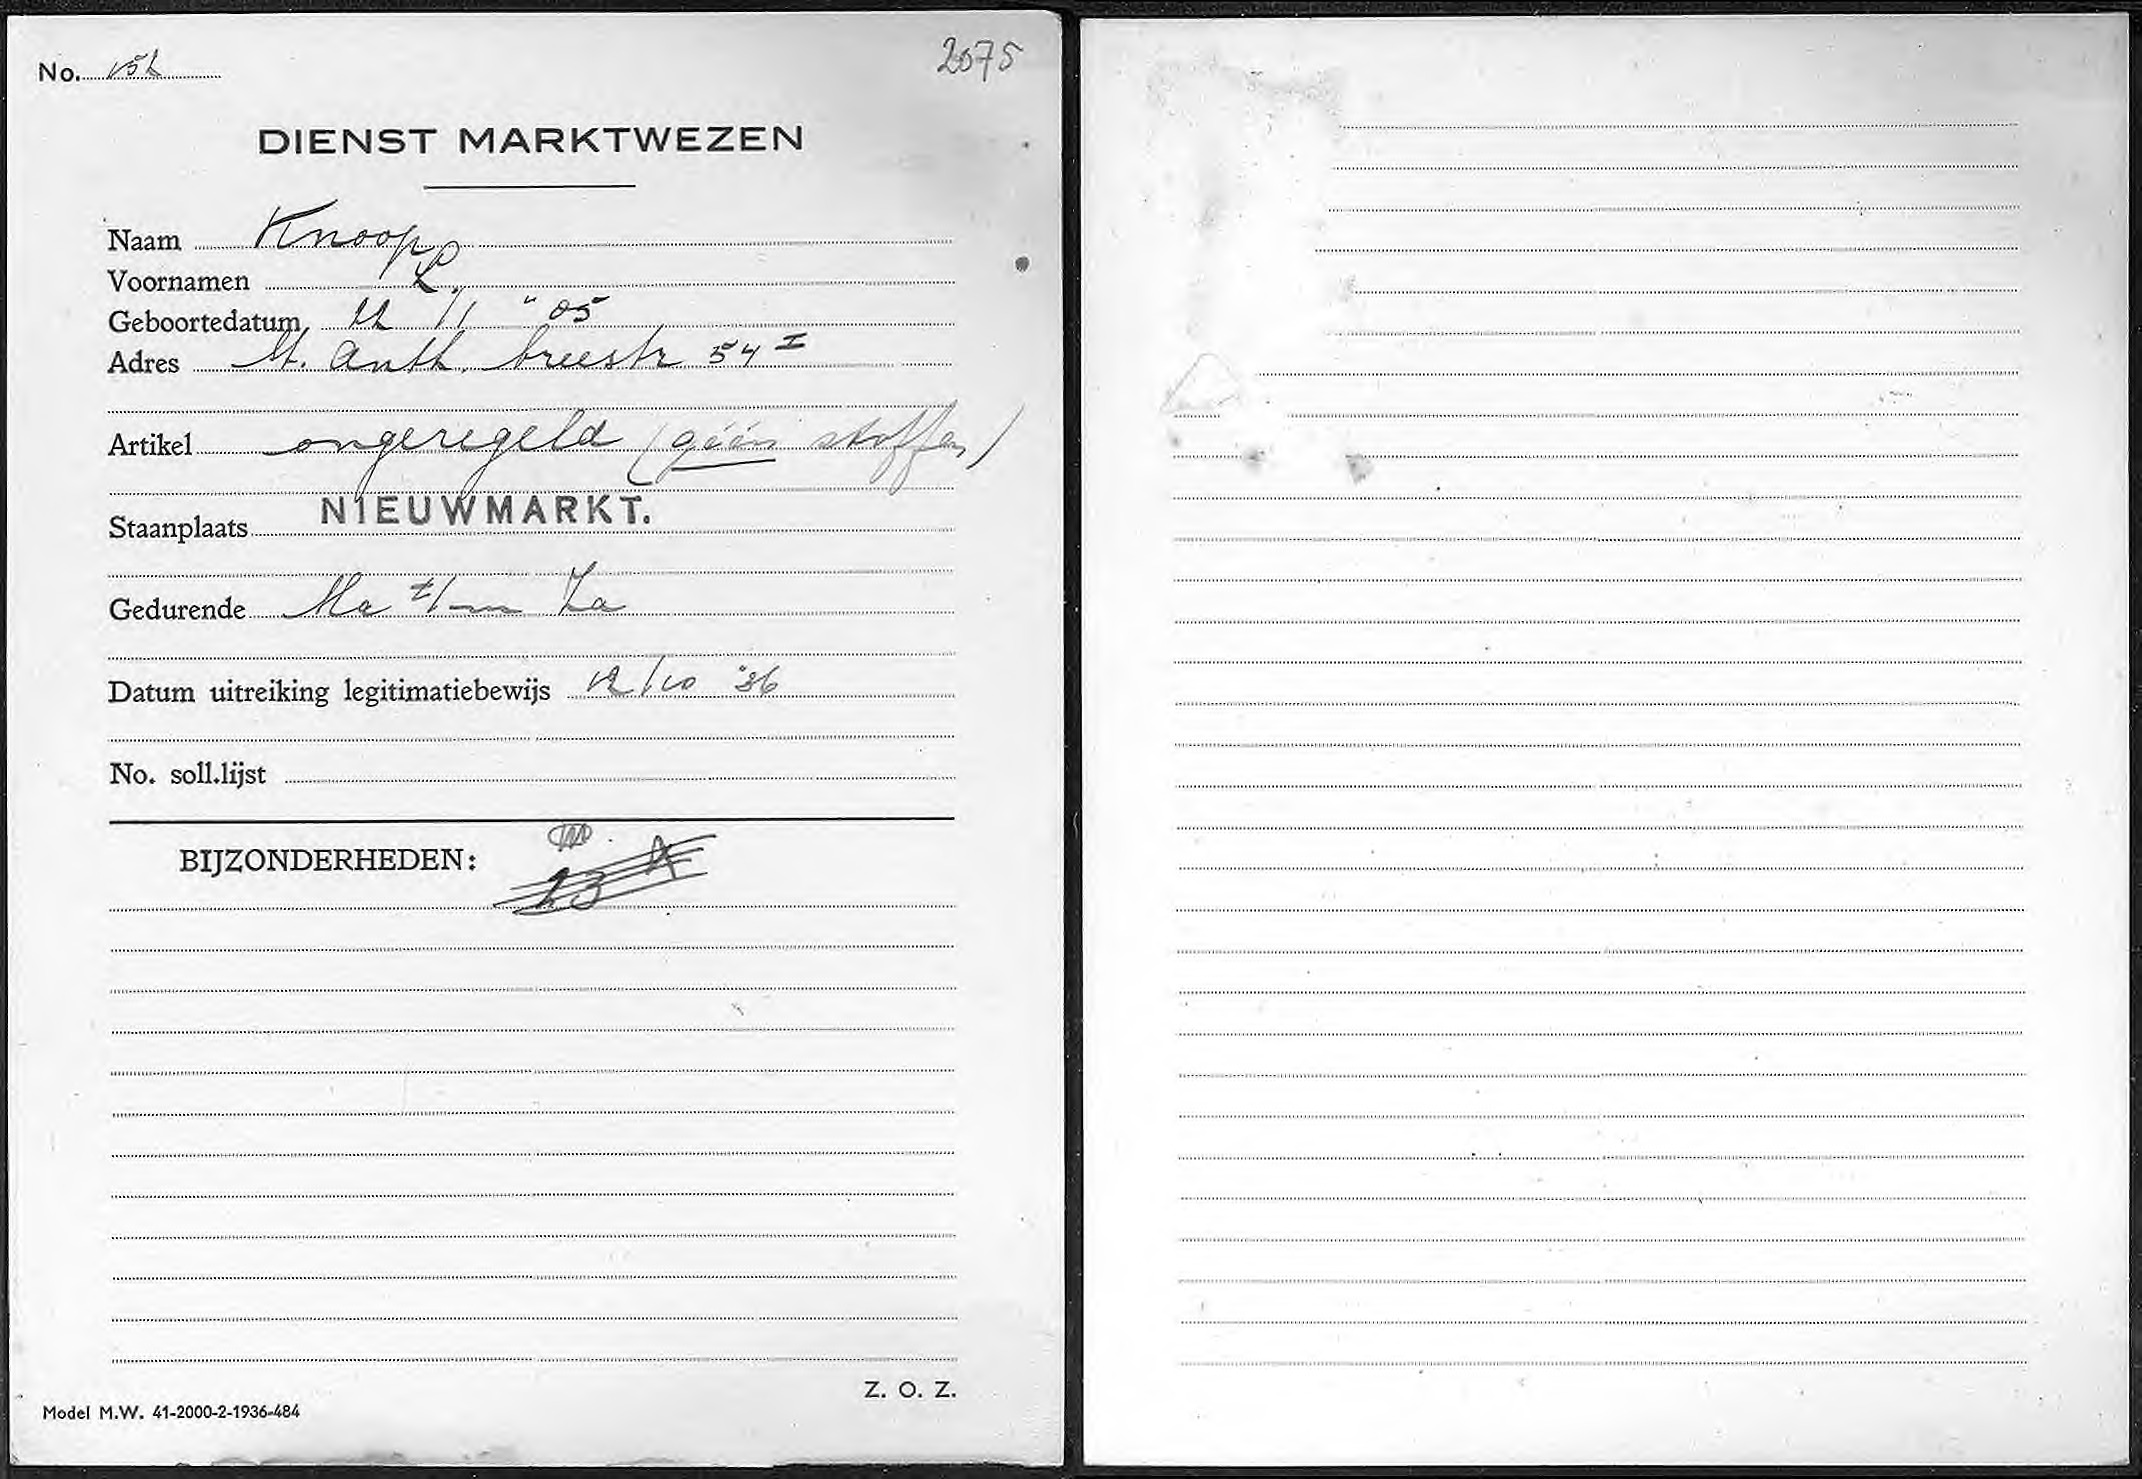 No. 152
2075
DIENST MARKTWEZEN
Naam Knoop
Voornamen L.
Geboortedatum /1 "05
Adres St. Anth. breestr 54 I
Artikel ongeregeld (géén stoffen)
Staanplaats NIEUWMARKT.
Gedurende Ma t/m Za
Datum uitreiking legitimatiebewijs 12/10 '36
No. soll.lijst
BIJZONDERHEDEN:
Z. O. Z.
Model M.W. 41-2000-2-1936-484